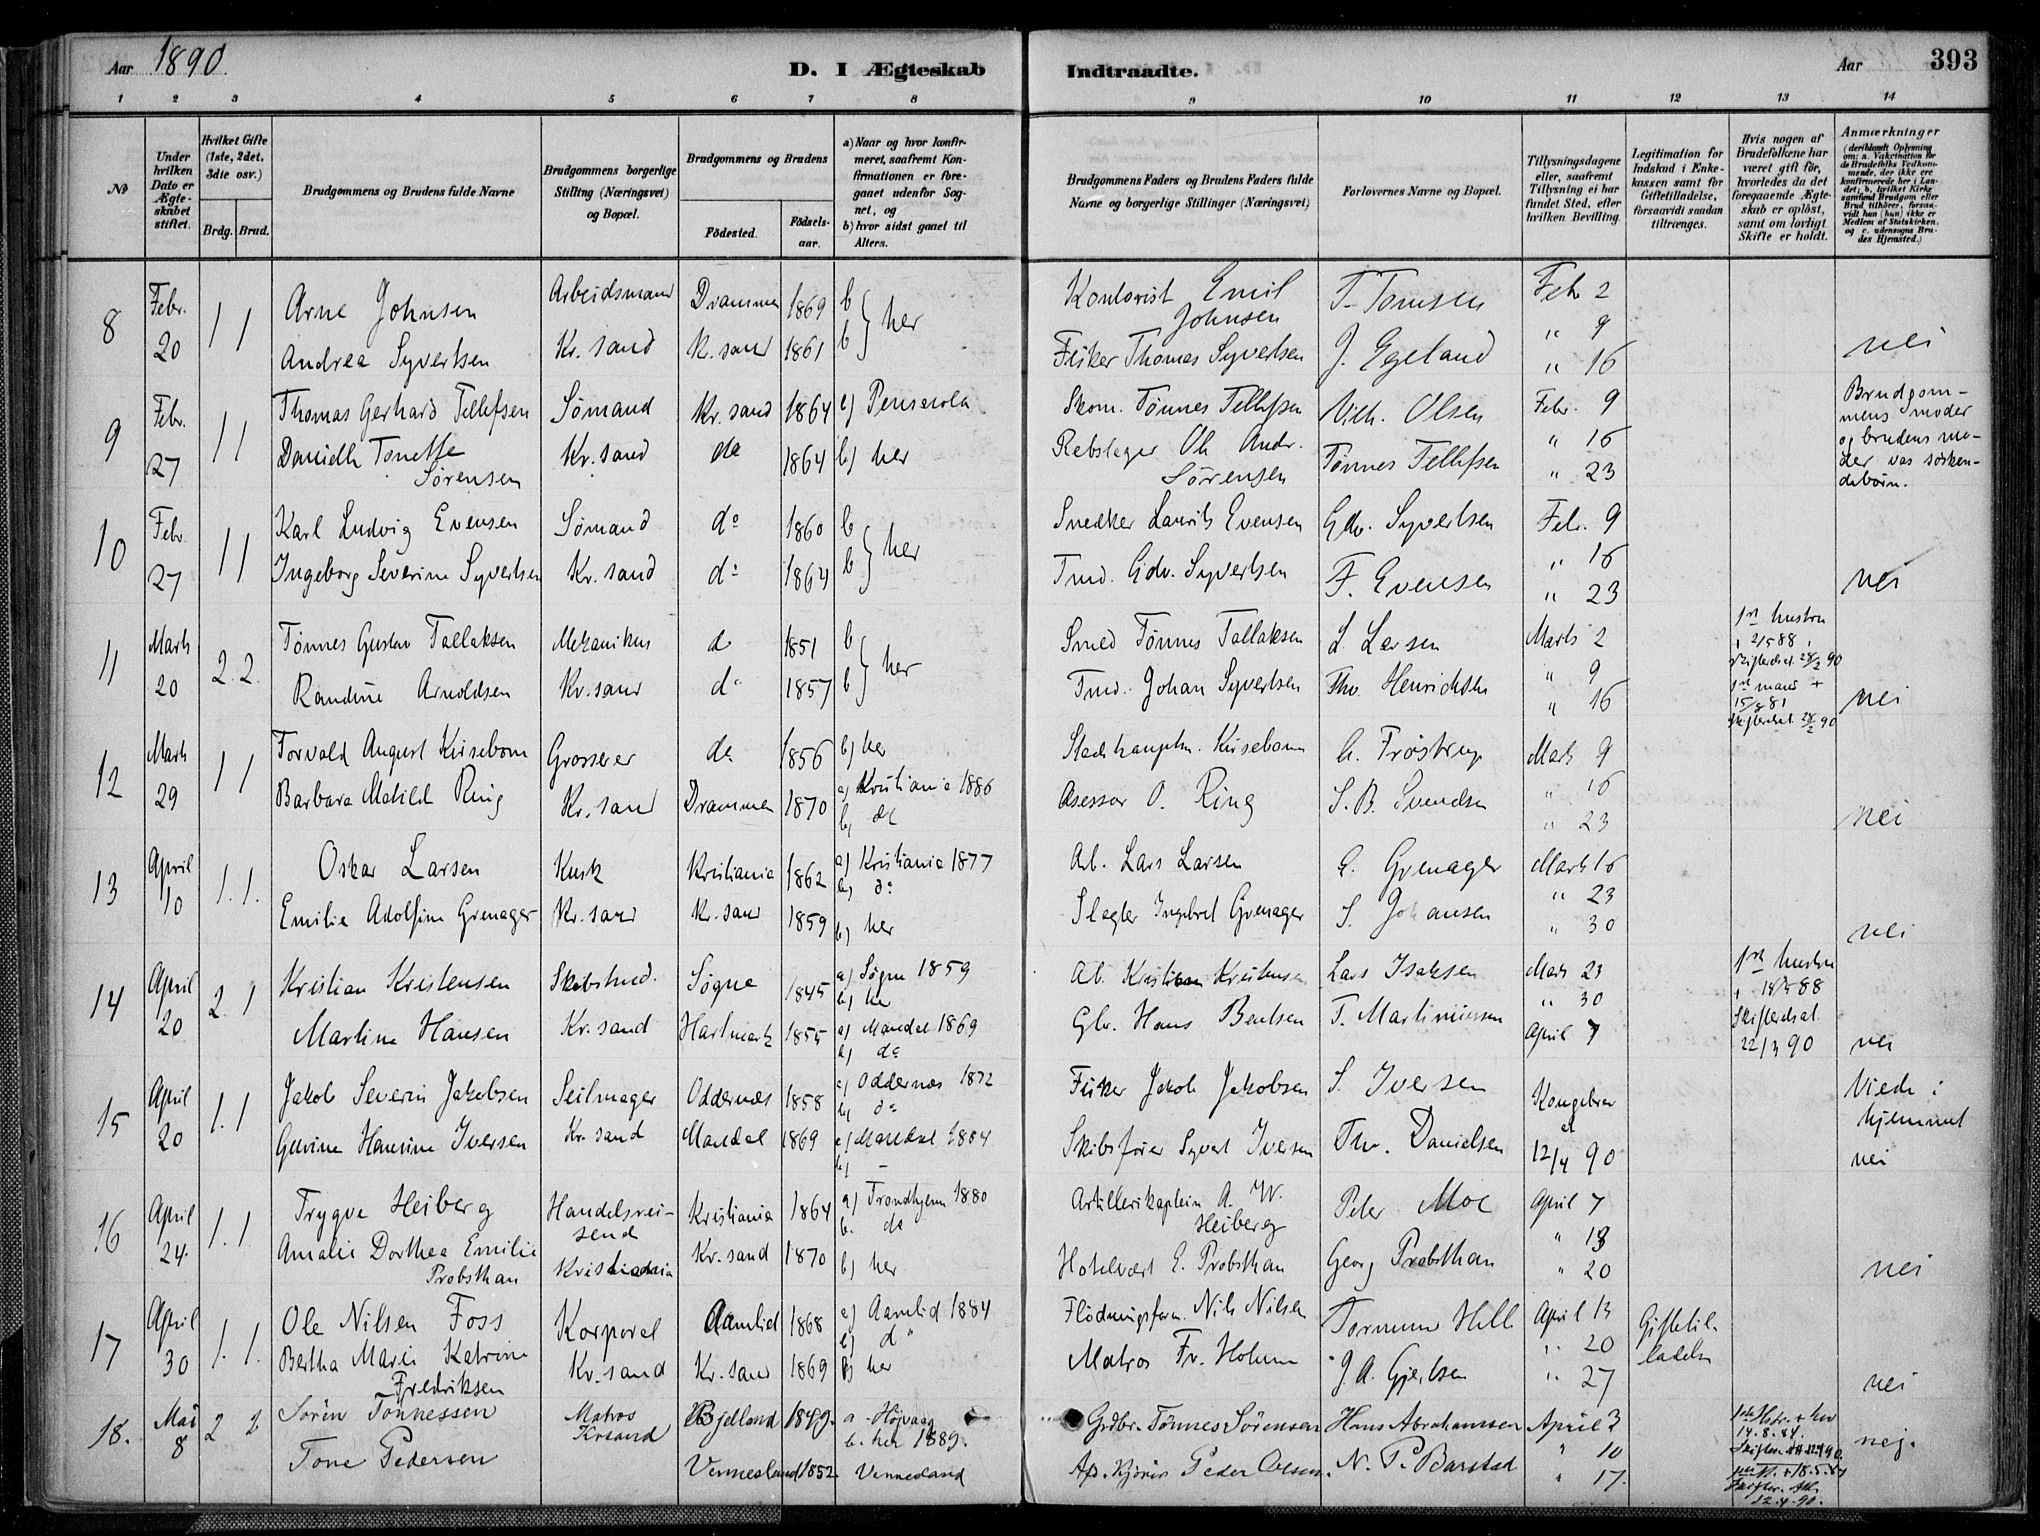 Aar 1890
D. I Ægteskab Indtraadte.
Aar 393
1 2 3 4 5 6 7 8 9 10 11 12 13 14
No
Under hvilken Dato er Ægteskabet stiftet.
Hvilket Gifte (1ste, 2det, 3die osv.)
Brdg. Brud.
Brudgommens og Brudens fulde Navne
Brudgommens borgerlige Stilling (Næringsvei) og Bopæl.
Brudgommens og Brudens
Födested.
Födselsaar.
a) Naar og hvor konfirmeret, saafremt Konfirmationen er foregaaet udenfor Sognet, og
b) hvor sidst gaaet til Alters.
Brudgommens Faders og Brudens Faders fulde Navne og borgerlige Stillinger (Næringsvei)
Forlovernes Navne og Bopæl.
Tillysningsdagene eller, saafremt Tillysning ei har fundet Sted, efter hvilken Bevilling.
Legitimation for Indskud i Enkekassen samt for Giftetilladelse, forsaavidt saadan tiltrænges.
Hvis nogen af Brudefolkene har været gift før, hvorledes da det foregaaende Ægteskab er opløst, samt om lovligt Skifte er holdt.
Anmærkninger
(deriblandt Oplysning om: a. Vakcination for de Brudefolks Vedkommende, der ikke ere konfirmerede her i Landet; b. hvilket Kirkesamfund Brudgom eller Brud tilhører, forsaavidt han (hun) ikke er Medlem af Statskirken, og c. udensogns Brudes Hjemsted.)
8 Febr. 20 1 1 Arne Johnsen Arbeidsmand Drammen 1869 b her Kontorist Emil Johnsen T. Tomsen Febr 2
Andrea Syvertsen Kr. sand Kr. sand 1861 b Fisker Thomas Syvertsen J. Egeland " 9 " 16 nei
9 Febr. 27 1 1 Thomas Gerhard Tellefsen Sømand Kr. sand 1864 a) Pensacola Skom. Tønnes Tellefsen Vilh. Olsen Febr. 9
Danielle Tonette Sørensen Kr. sand do 1864 b) her Rebslager Ole Andr. Sørensen Tønnes Tellefsen " 16 " 23
Brudgommens moder og brudens moder var søskendebørn.
10 Febr 27 1 1 Karl Ludvig Evensen Sømand do 1860 b her Snedker Laurits Evensen Edv. Syvertsen Febr. 9
Ingeborg Severine Syvertsen Kr. sand do 1864 b Tmd. Edv. Syvertsen F. Evensen " 16 " 23 nei
11 Marts 20 2. 2. Tønnes Gustav Tallaksen Mekanikus do 1851 b her Smed Tønnes Tallaksen L. Larsen Marts 2
Randine Arnoldsen Kr. sand do 1857 b Tmd. Johan Syvertsen Thv. Henrichsen " 9 " 16
1ste hustru + 2/5 88, Skifteattest 28/2 90
1ste mand + 15/8 81 Skifteattest 28/2 90 nei
12 Marts 29 1 1 Torvald August Kirsebom Grosserer do 1856 b) her Stadshauptm. Kirsebom G. Frøstrup Marts 9
Barbara Matilde Ring Kr. sand Drammen 1870 a) Kristiania 1886 b) do Asessor O. Ring S. B. Svendsen " 16 " 23 nei
13 April 10 1. 1. Oskar Larsen Kusk Kristiania 1862 a) Kristiania 1877 b) do Arb. Lars Larsen G. Grenager Marts 16
Emilie Adolfine Grenager Kr. sand Kr. sand 1859 b) her Slagter Ingebret Grenager S. Johansen " 23 " 30 nei
14 April 20 2 1 Kristian Kristensen Skibstmd. Søgne 1845 a) Søgne 1859 b) her Ab. Kristian Kristensen Lars Isaksen Marts 23
Martine Hansen Kr. sand Hartmark 1855 a) Mandal 1869 b) do Gbr. Hans Bentsen T. Martiniussen " 30 April 7
1ste hustru + 88 Skifteattest 22/3 90 nei
15 April 20 1. 1 Jakob Severin Jakobsen Seilmager Oddernæs 1858 a) Oddernæs 1872 b) do Fisker Jakob Jakobsen S. Iversen Kongebrev
Gurine Hansine Iversen Kr. sand Mandal 1869 a) Mandal 1884 b) – Skibsfører Syvert Iversen Thv. Danielsen 12/4 90
Viede i hjemmet nei
16 April 24. 1. 1. Trygve Heiberg Handelsreisend 1864 Kristiania a) Trondhjem 1880 b. do Artillerikaptein A. W. Heiberg Peter Moe April 7
Amalie Dorthea Emilie Probsthan Kristiania Kr. sand 1870 b) her Hotelvært E. Probsthan Georg Probsthan " 13 " 20 nei
17 April 30 1. 1. Ole Nilsen Foss Korporal Aamlid 1868 a) Aamlid 1884 b) do Flødningsform. Nils Nilsen Tormum Hille April 13 Giftetilladelse
Bertha Marie Katrine Fredriksen Kr. sand Kr. sand 1869 b) her Matros Fr. Holum J. A. Gjertsen " 20 " 27 nei
18. Mai 8 2 2 Sören Tönnessen Matros Krsand Bjelland 1849. a - Høivaag b. her 1889. Grdbr. Tönnes Sörensen Hans Abrahamsen April 3
Tone Pedersen Vennesland 1852 Vennesland Peder Olsen. N. P. Barstad " 10 " 17.
1ste Hstr. + her 14.8.84. nej.
12.4.90.